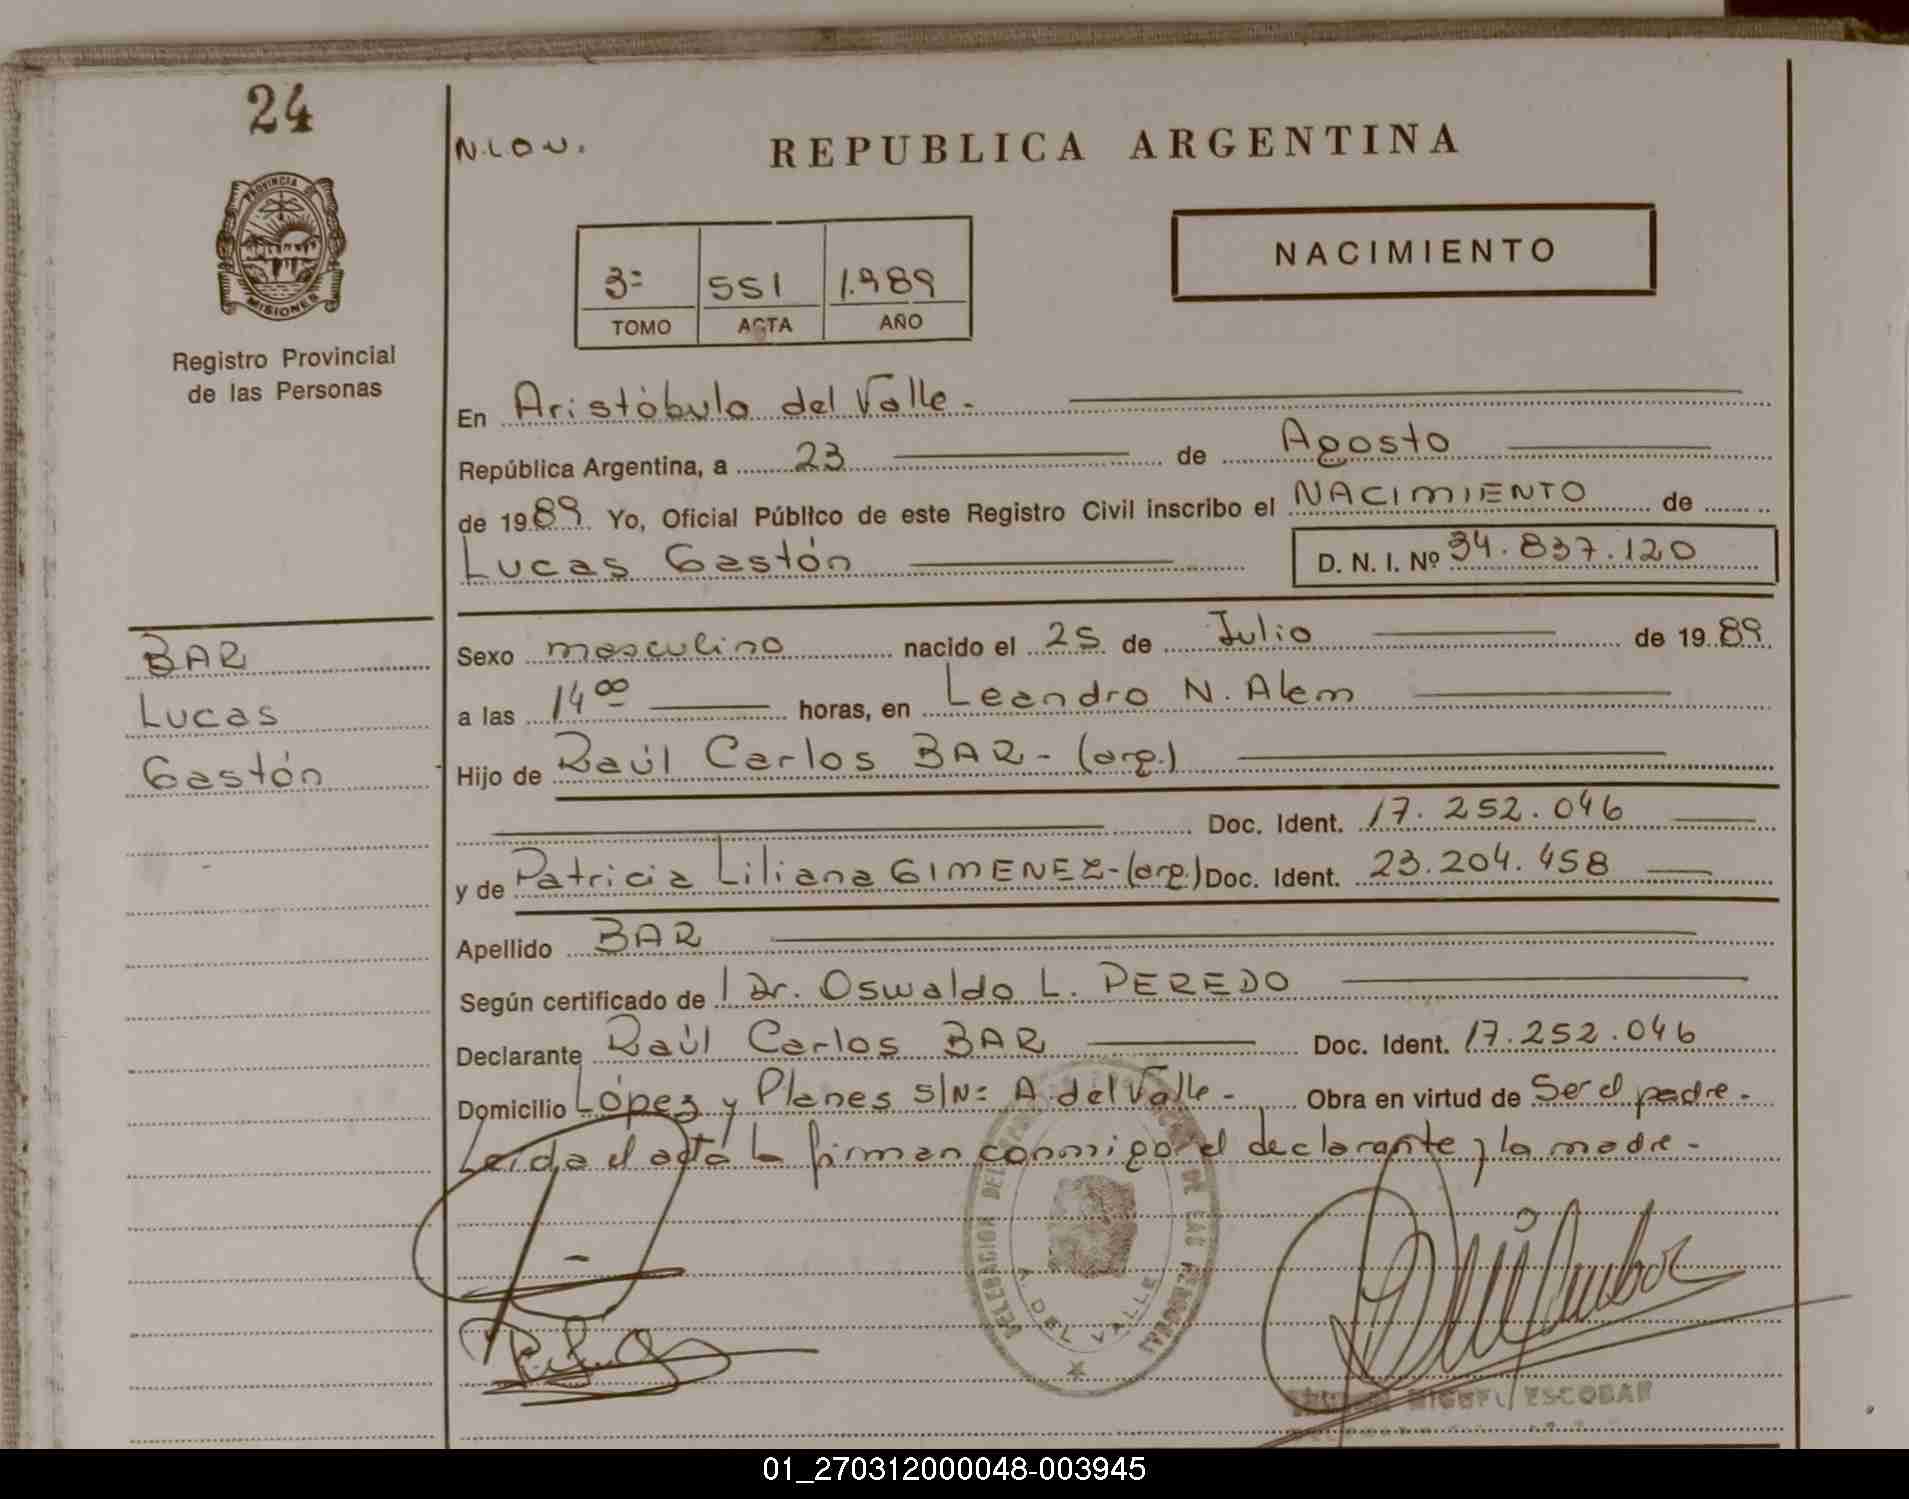 24
PROVINCIA DE
MISIONES
Registro Provincial
de las Personas
BAR
Lucas
Gastón
N.L.O.U.
REPUBLICA ARGENTINA
NACIMIENTO
3º 551 1.989
TOMO ACTA AÑO
En Aristóbulo del Valle.-
República Argentina, a 23 de Agosto
de 1989 Yo, Oficial Público de este Registro Civil inscribo el NACIMIENTO de
Lucas Gastón D. N. I. Nº 34.837.120
Sexo masculino nacido el 25 de Julio de 1989
a las 14 00 horas, en Leandro N. Alem
Hijo de Raúl Carlos BAR- (arg.)
Doc. Ident. 17.252.046
y de Patricia Liliana GIMENEZ-(arg.) Doc. Ident. 23.204.458
Apellido BAR
Según certificado de Dr. Oswaldo L. PEREDO
Declarante Raúl Carlos BAR Doc. Ident. 17.252.046
Domicilio López y Planes S/Nº A. del Valle.- Obra en virtud de Ser el padre.-
Leída el acta la firman conmigo el declarante y la madre.-
DELEGACION DEL REGISTRO PROVINCIAL DE LAS PERSONAS
A. DEL VALLE
MIGUEL ESCOBAR
01_270312000048-003945